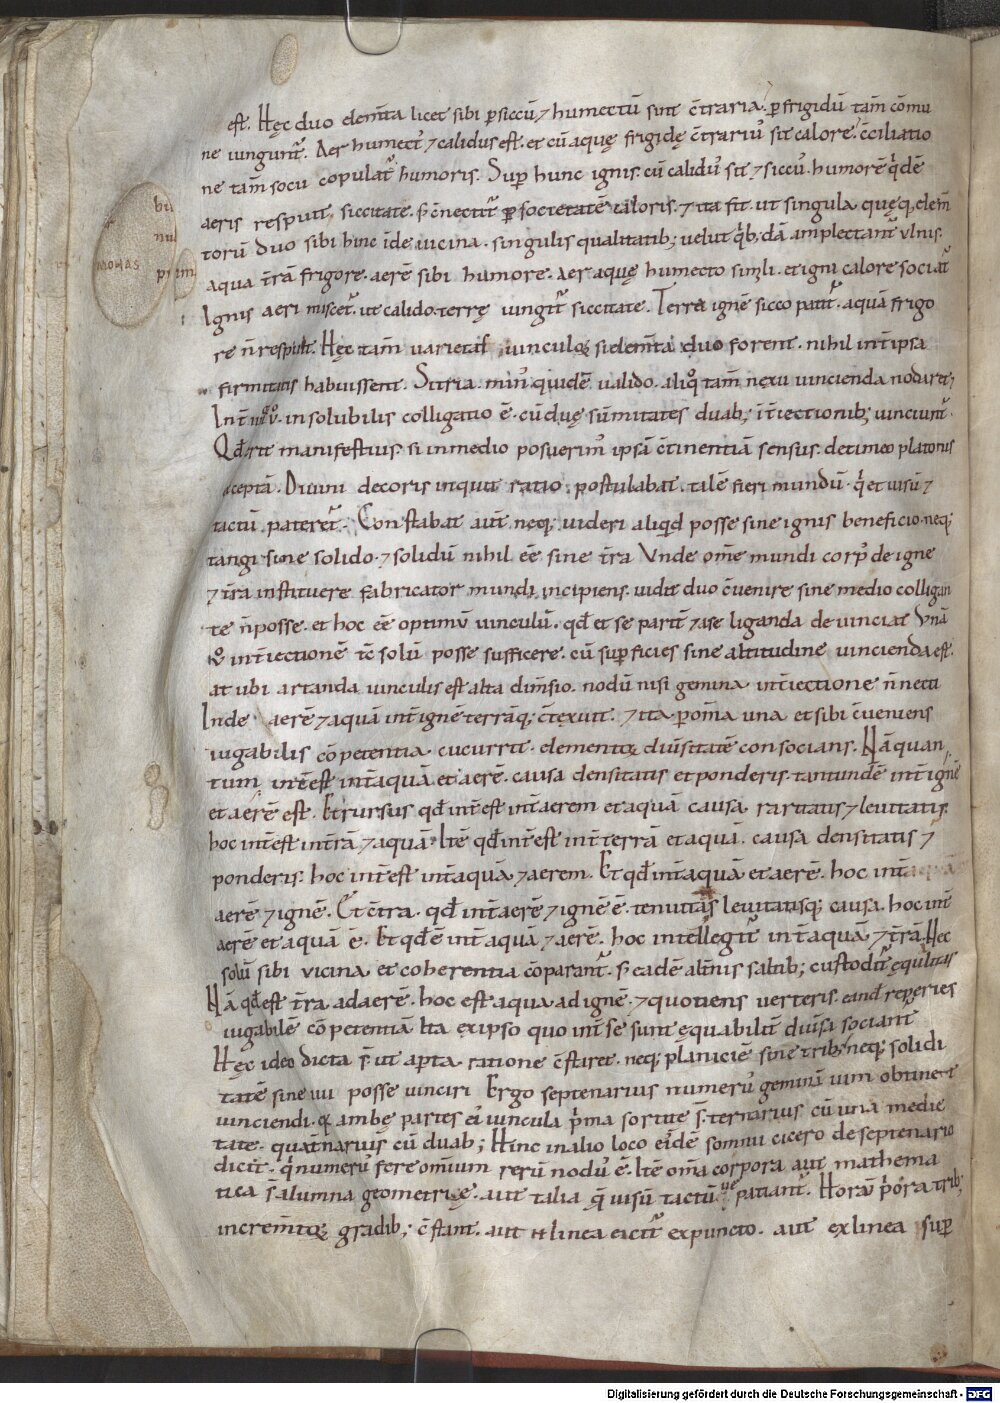 est. Hęc duo elem̄ta licet sibi ꝑ siccū ⁊ humectū sint c̄traria. ꝑ frigidū tam̄ cōmu
ne iungunt᷑. Aer humect᷒ ⁊ calidus est. et cū aquę frigidę c̄trariū sit calore. c̄ciliatio
ne tam̄ socu copulat᷑ humoris. Suꝑ hunc ignis. cū calid᷒ sit ⁊ sicc᷒. humorē q̇dē
aeris respuit siccitate. s; c̄nectit᷑ ꝑ societatē caloris. ⁊ ita fit ut singula quęq; elem̄
torū duo sibi hinc īde uicina. singulis qualitatib; uelut q̇b;dā amplectant᷑ ulnis.
aqua t̄rā frigore. aerē sibi humore. Aer aquę humecto simli. et igni calore sociat᷑
Ignis aeri miscet᷑. ut calido. terrę iungit᷑ siccitate. Terra ignē sicco patit᷑. aquā frigo
re n̄ respuit. Hęc tam̄ uarietas uinculoꝝ si elem̄ta duo forent. nihil int̄ ipsa
firmitatis habuissent. Si tria. min᷒ quidē ualido. aliq̊ tam̄ nexu uincienda nodaret;
Int̄ iiiior ů. insolubilis colligatio ē. cū duę sūmitates duab; īt̄iectionib; uinciunt᷑.
Qđ erit manifestius. si in medio posuerim᷒ ipsā c̄tinentiā sensus. de timeo platonis
acceptā. Diuini decoris inquit ratio postulabat talē fieri mundū. q̇ et uisū ⁊
tactū pateret᷑. Constabat aut̄ neq; uideri aliqđ posse sine ignis beneficio. neq;
tangi sine solido. ⁊ solidū nihil eē sine t̄ra Unde om̄e mundi corp᷒ de igne
⁊ t̄ra instituere fabricator mundi incipiens. uidit duo c̄uenire sine medio colligan
te n̄ posse. et hoc eē optimū uinculū. qđ et se parit᷑ ⁊ a se liganda deuinciat Unā
ů int̄iectionē tc̄ solū posse sufficere. cū suꝑficies sine altitudine uincienda est.
at ubi artanda uinculis est alta dim̄sio. nodū nisi gemina int̄iectione n̄ necti
Inde aerē ⁊ aquā int̄ ignē terrāq; c̄texuit. ⁊ ita ꝑ om̄a una et sibi c̄ueniens
iugabilis cōpetentia cucurrit. elementoꝝ diūsitatē consocians. Nā quan
tum int̄est int̄ aquā et aerē. causa densitatis et ponderis. tantundē int̄ ignē
et aerē est. Et rursus qđ int̄est int̄ aerem et aquā causa raritatis ⁊ leuitatis.
hoc int̄est int̄ t̄rā ⁊ aquā. Itē qđ int̄est int̄ terrā et aquā. causa densitatis ⁊
ponderis. hoc int̄est int̄ aquā ⁊ aerem. Et qđ int̄ aquā et aerē. hoc int̄
aerē ⁊ ignē. Et c̄tra. qđ int̄ aerē ⁊ ignē ē. tenuitatis leuitatisq; causa. hoc int̄
aerē et aquā ē. Et qđ ē int̄ aquā ⁊ aerē. hoc intellegit᷑ int̄ aquā ⁊ t̄rā. Nec
solū sibi uicina et coherentia cōparant᷑. s; eadē alt̄nis saltib; custodit᷑ ęqualitas
Nā qđ est t̄ra ad aerē. hoc est aqua ad ignē. ⁊ quotiens uerteris. eandē reꝑeries
iugabilē cōpetentiā Ita ex ipso quo int̄ se sunt ęquabilit̄ diūsa sociant᷑
Hęc ideo dicta s̄. ut aꝑta ratione c̄staret. neq; planiciē sine trib; neq; solidi
tatē sine iiii posse uinciri Ergo septenarius numer᷒ geminā uim obtinet
uinciendi. qa ambę partes ei᷒ uincula p̄ma sortite s̄. ternarius cū una medie
tate. quat̄narius cū duab; Hinc in alio loco ei᷒dē somnii cicero de septenario
dicit. q̇ numer᷒ fere omnium rerū nod᷒ ē. Itē om̄a corpora aut mathema
tica s̄ alumna geometrię. aut talia q̄ uisū tactū ue patiant᷑. Horū p̄ora trib;
increm̄toꝝ gradib; c̄stant. aut ē linea eicit᷑ ex puncto. aut ex linea suꝑ
monas
bi
nu
prim
Digitalisierung gefördert durch die Deutsche Forschungsgemeinschaft - DFG